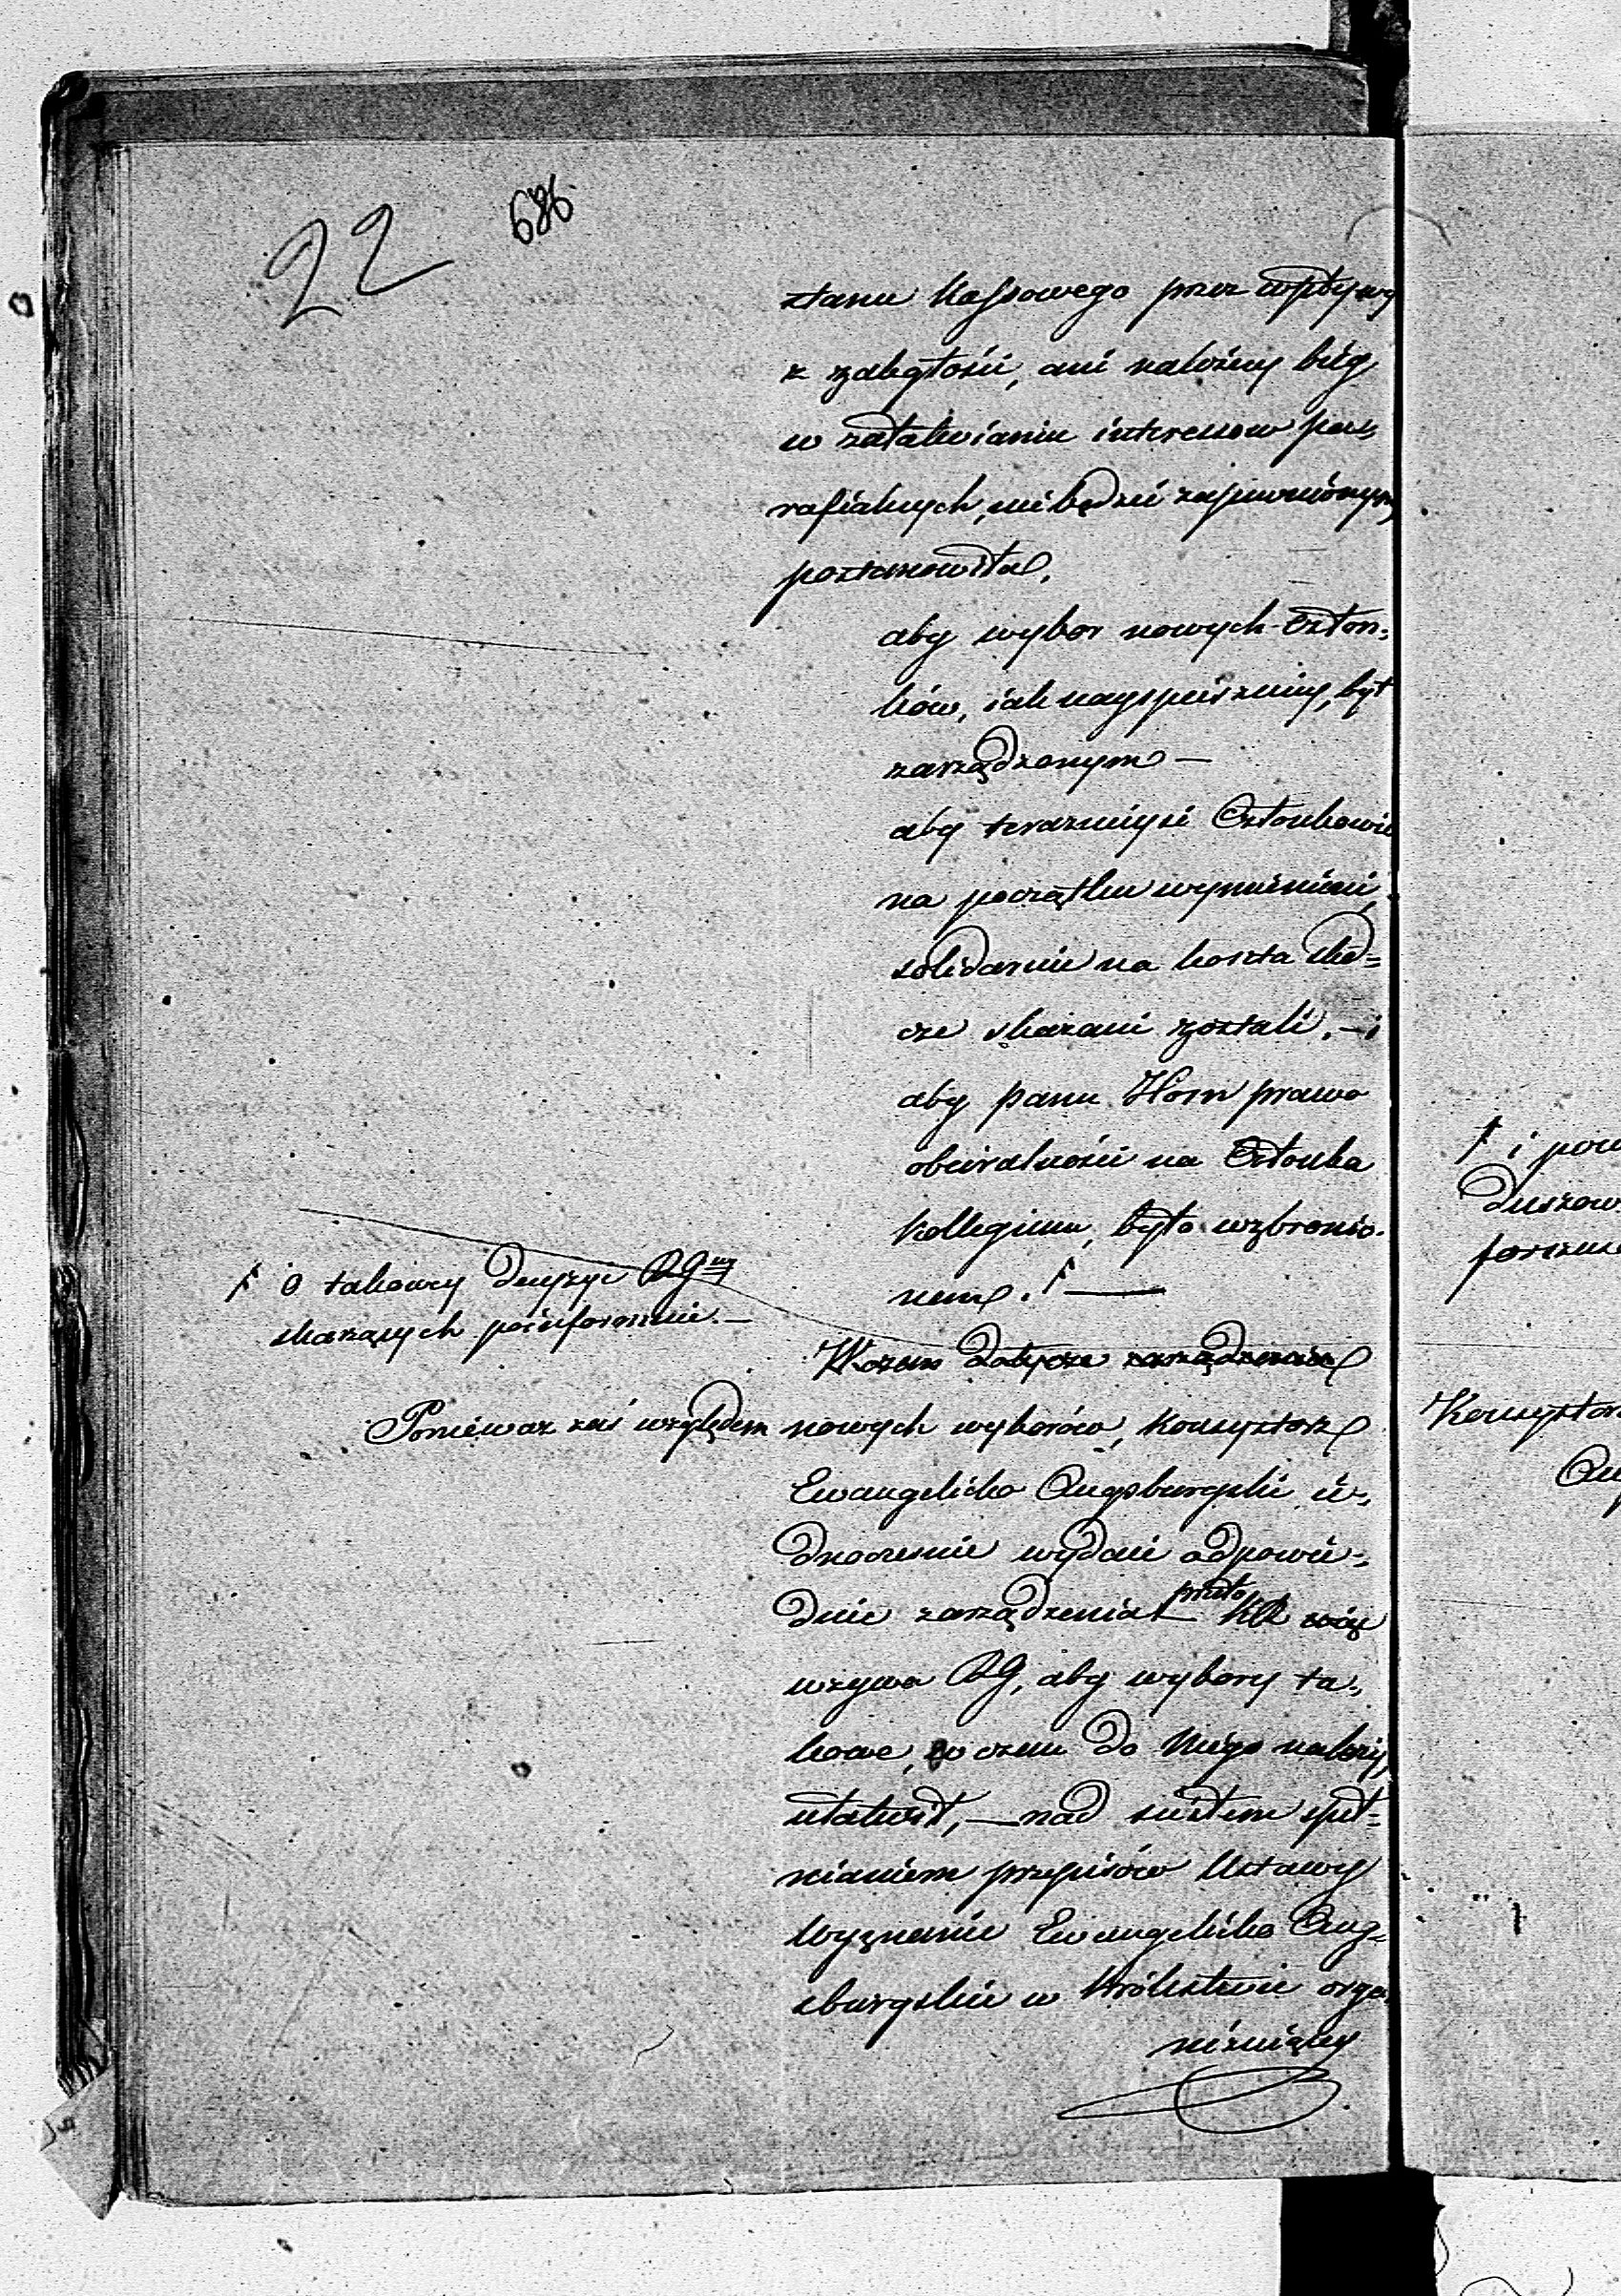 22 686
stanu kassowego przez wpływy
z zaległości, ani należny bieg
w załatwianiu interessow pa„
rafialnych, nie będzie zapewnionym
postanowiła,
aby wybor nowych Człon„
ków, iak nayspieszniey, był
zarządzonym —
aby teraznieysi Członkowie
na początku wymienieni,
solidarnie na koszta śled=
cze skazani zostali, — i
aby panu Horn prawo
obieralności na Członka
kollegium, było wzbronio„
nem. ƒ —
ƒ O takowey decyzyi RGwy
skarżących poinformuie. —
dotycze zarządzenia
Ponieważ zaś względem nowych wyborów, Konsystorz
Ewangelicko Augsburgski ie„
dnocześnie wydaie odpowie„
dnie zarządzenia przeto KR
wzywa RG, aby wybory ta„
kowe, w czem do Niego należy,
ułatwił, — nad scisłem speł„
nianiem przepisów Ustawy
Wyznanie Ewangelicko Aug„
sburgskie w Królestwie orga„
nizuiącey
ƒ i pow
duszow
Konsystor